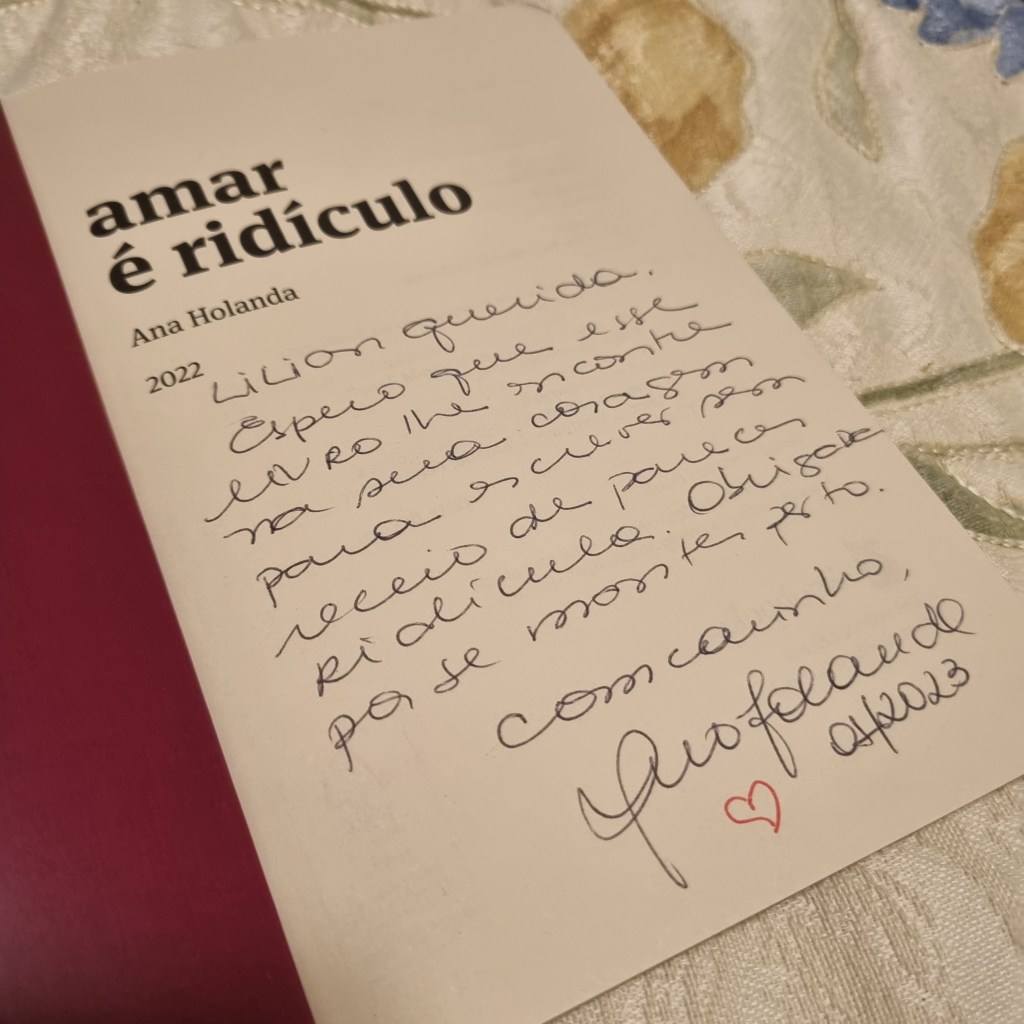 amar
é ridículo
Ana Holanda
2022
Lilian querida.
Espero que esse
livro lhe encontre
na sua coragem
para escrever sem
receio de parecer
ridícula. Obrigada
por se manter perto.
com carinho,
Ana Holanda
01/2023